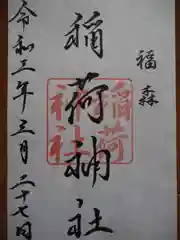 福森
稲荷神社
稲荷神社
令和三年三月二十七日